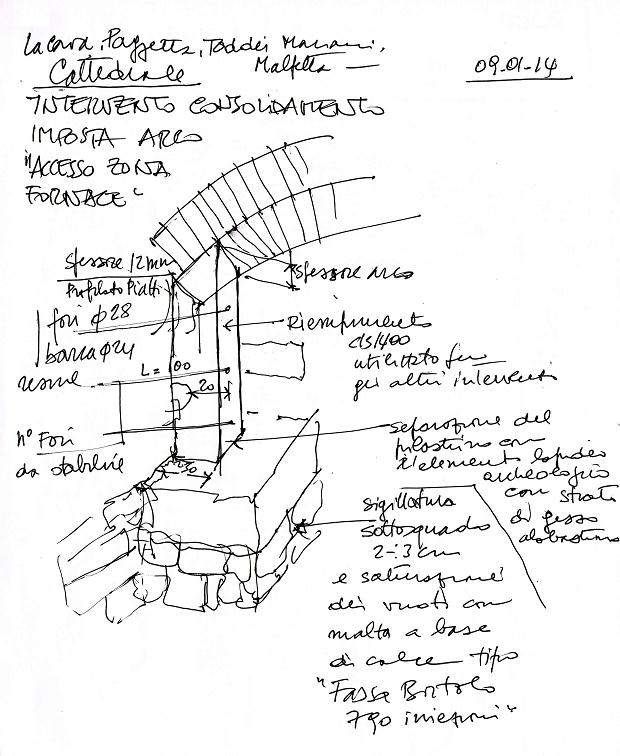 La Cava, Pazzetta, Taddei Mariani,
Cattedrale Malfetta
09-01-14
INTERVENTO CONSOLIDAMENTO
IMPOSTA ARCO
"ACCESSO ZONA
FORNACE"
Spessore 12mm
Profilato Piatti
spessore arco
fori φ28
barra φ24
Riempimento
utilizzato per
gli altri interventi
resine
L = 80
20
n° Fori
da stabilire
30
separazione del
pilastrino con
l'elemento lapideo
archeologico
con strato
di gesso
alabastrino
sigillatura
sottosquadro
2÷3 cm
e saturazione
dei vuoti con
malta a base
di calce tipo
"Fassa Bortolo
790 iniezioni"